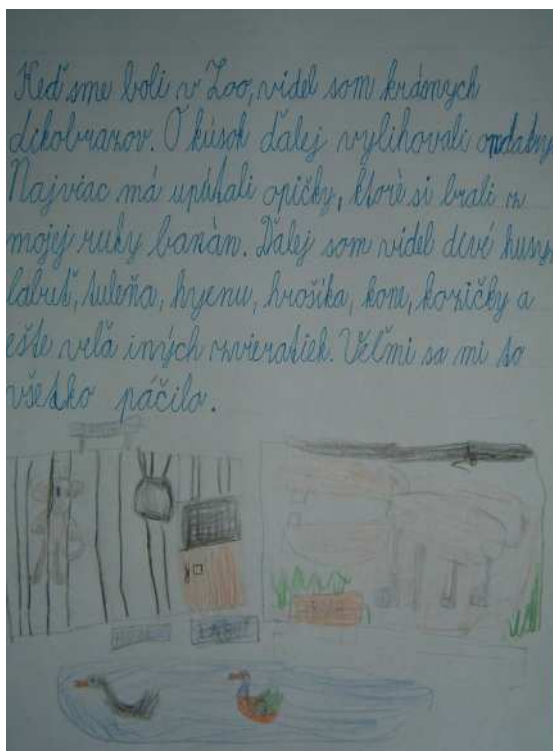 Keď sme boli v Zoo, videl som krásnych
dikobrazov. O kúsok ďalej vylihovali ondatry.
Najviac má upútali opičky, ktoré si brali z
mojej ruky banán. Ďalej som videl divé husy,
labuť, tuleňa, hyenu, hrošíka, kone, kozičky a
ešte veľa iných zvieratiek. Veľmi sa mi to
všetko páčilo.